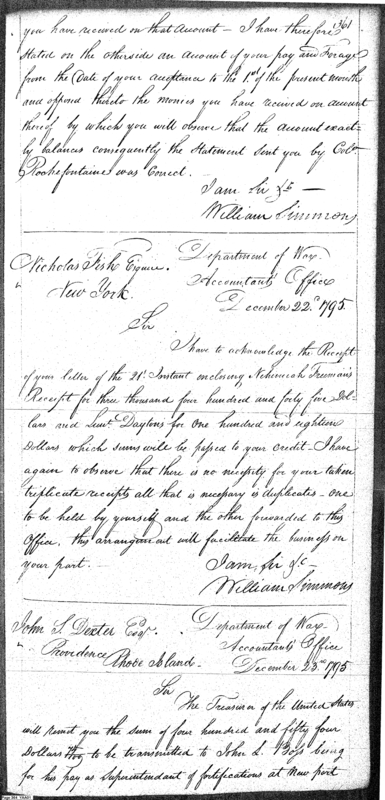 361
you have received on that Account – I have therefore
Stated on the otherside an account of your pay and Forage
from the Date of your acceptance to the 1st of the present month
and opposed thereto the monies you have received on account
thereof by which you will observe that the Account exact-
ly balances consequently the Statement sent you by Colo
Rochefontaine was Correct.
I am Sir &c –
William Simmons
Nicholas Fish Esquire.
New York.
Department of War
Accountants Office
December 22d 1795.
Sir
I have to acknowledge the Receipt
of your letter of the 21t Instant enclosing Nehemiah Freeman's
Receipt for three thousand four hundred and forty five Dol-
lars and Lieut. Daytons for one hundred and eighteen
Dollars which sums will be passed to your credit – I have
again to observe that there is no necessity for your taken
triplicate receipts all that is necessary is duplicates – one
to be held by yourself and the other forwarded to this
Office, this arrangement will facilitate the business on
your part. –
I am, Sir &c
William Simmons
John S. Dexter Esqr.
Providence
Rhode Island –
Department of War
Accountants Office
December 23d 1795
Sir
The Treasurer of the United States
will remit you the sum of four hundred and fifty four
Dollars to be transmitted to John L. Boss being
for his pay as Superintendant of fortifications at New port